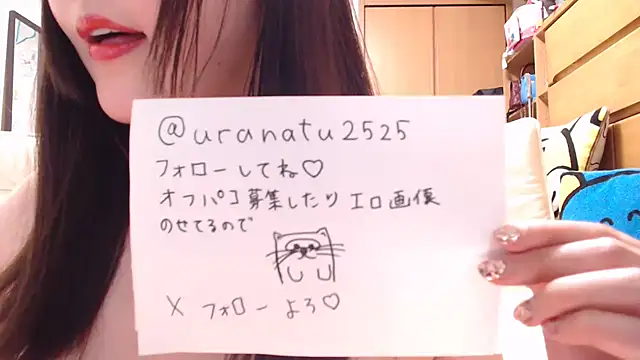 @uranatu2525
フォローしてね♡
オフパコ募集したりエロ画像
のせてるので
X フォローよろ♡